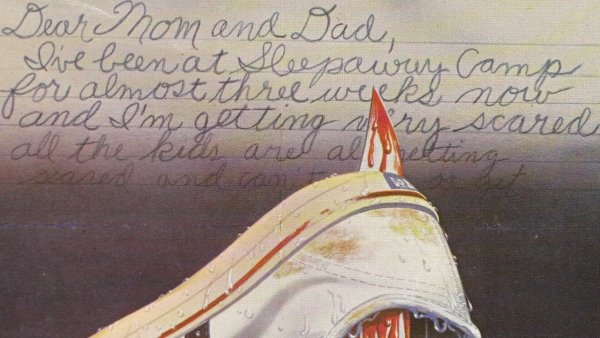 Dear Mom and Dad,
I've been at Sleepaway Camp
for almost three weeks now
and I'm getting very scared
all the kids are al getting
scared and can't